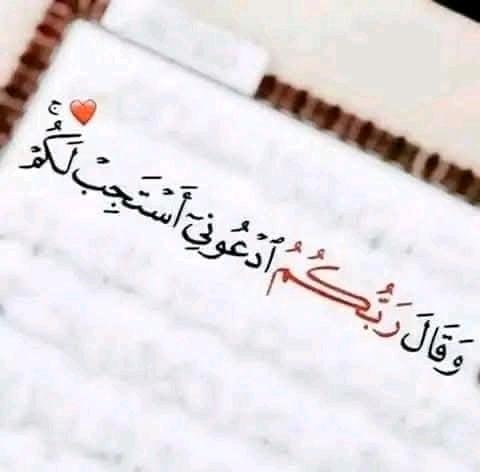 وَقَالَ رَبُّكُمُ ٱدْعُونِىٓ أَسْتَجِبْ لَكُمْ ۚ ❤️